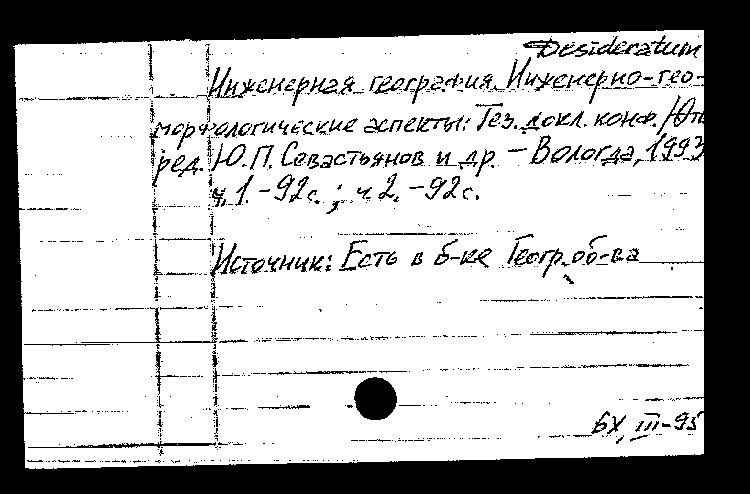 Desideratum
Инженерная география. Инженерно-гео-
морфологические аспекты: Тез. докл. конф. / Отв
ред. Ю.П. Севастьянов и др. – Вологда, 1993
ч. 1. – 92с. ; ч 2. – 92с.
Источник: Есть в б-ке Геогр. об-ва
БХ, III-95